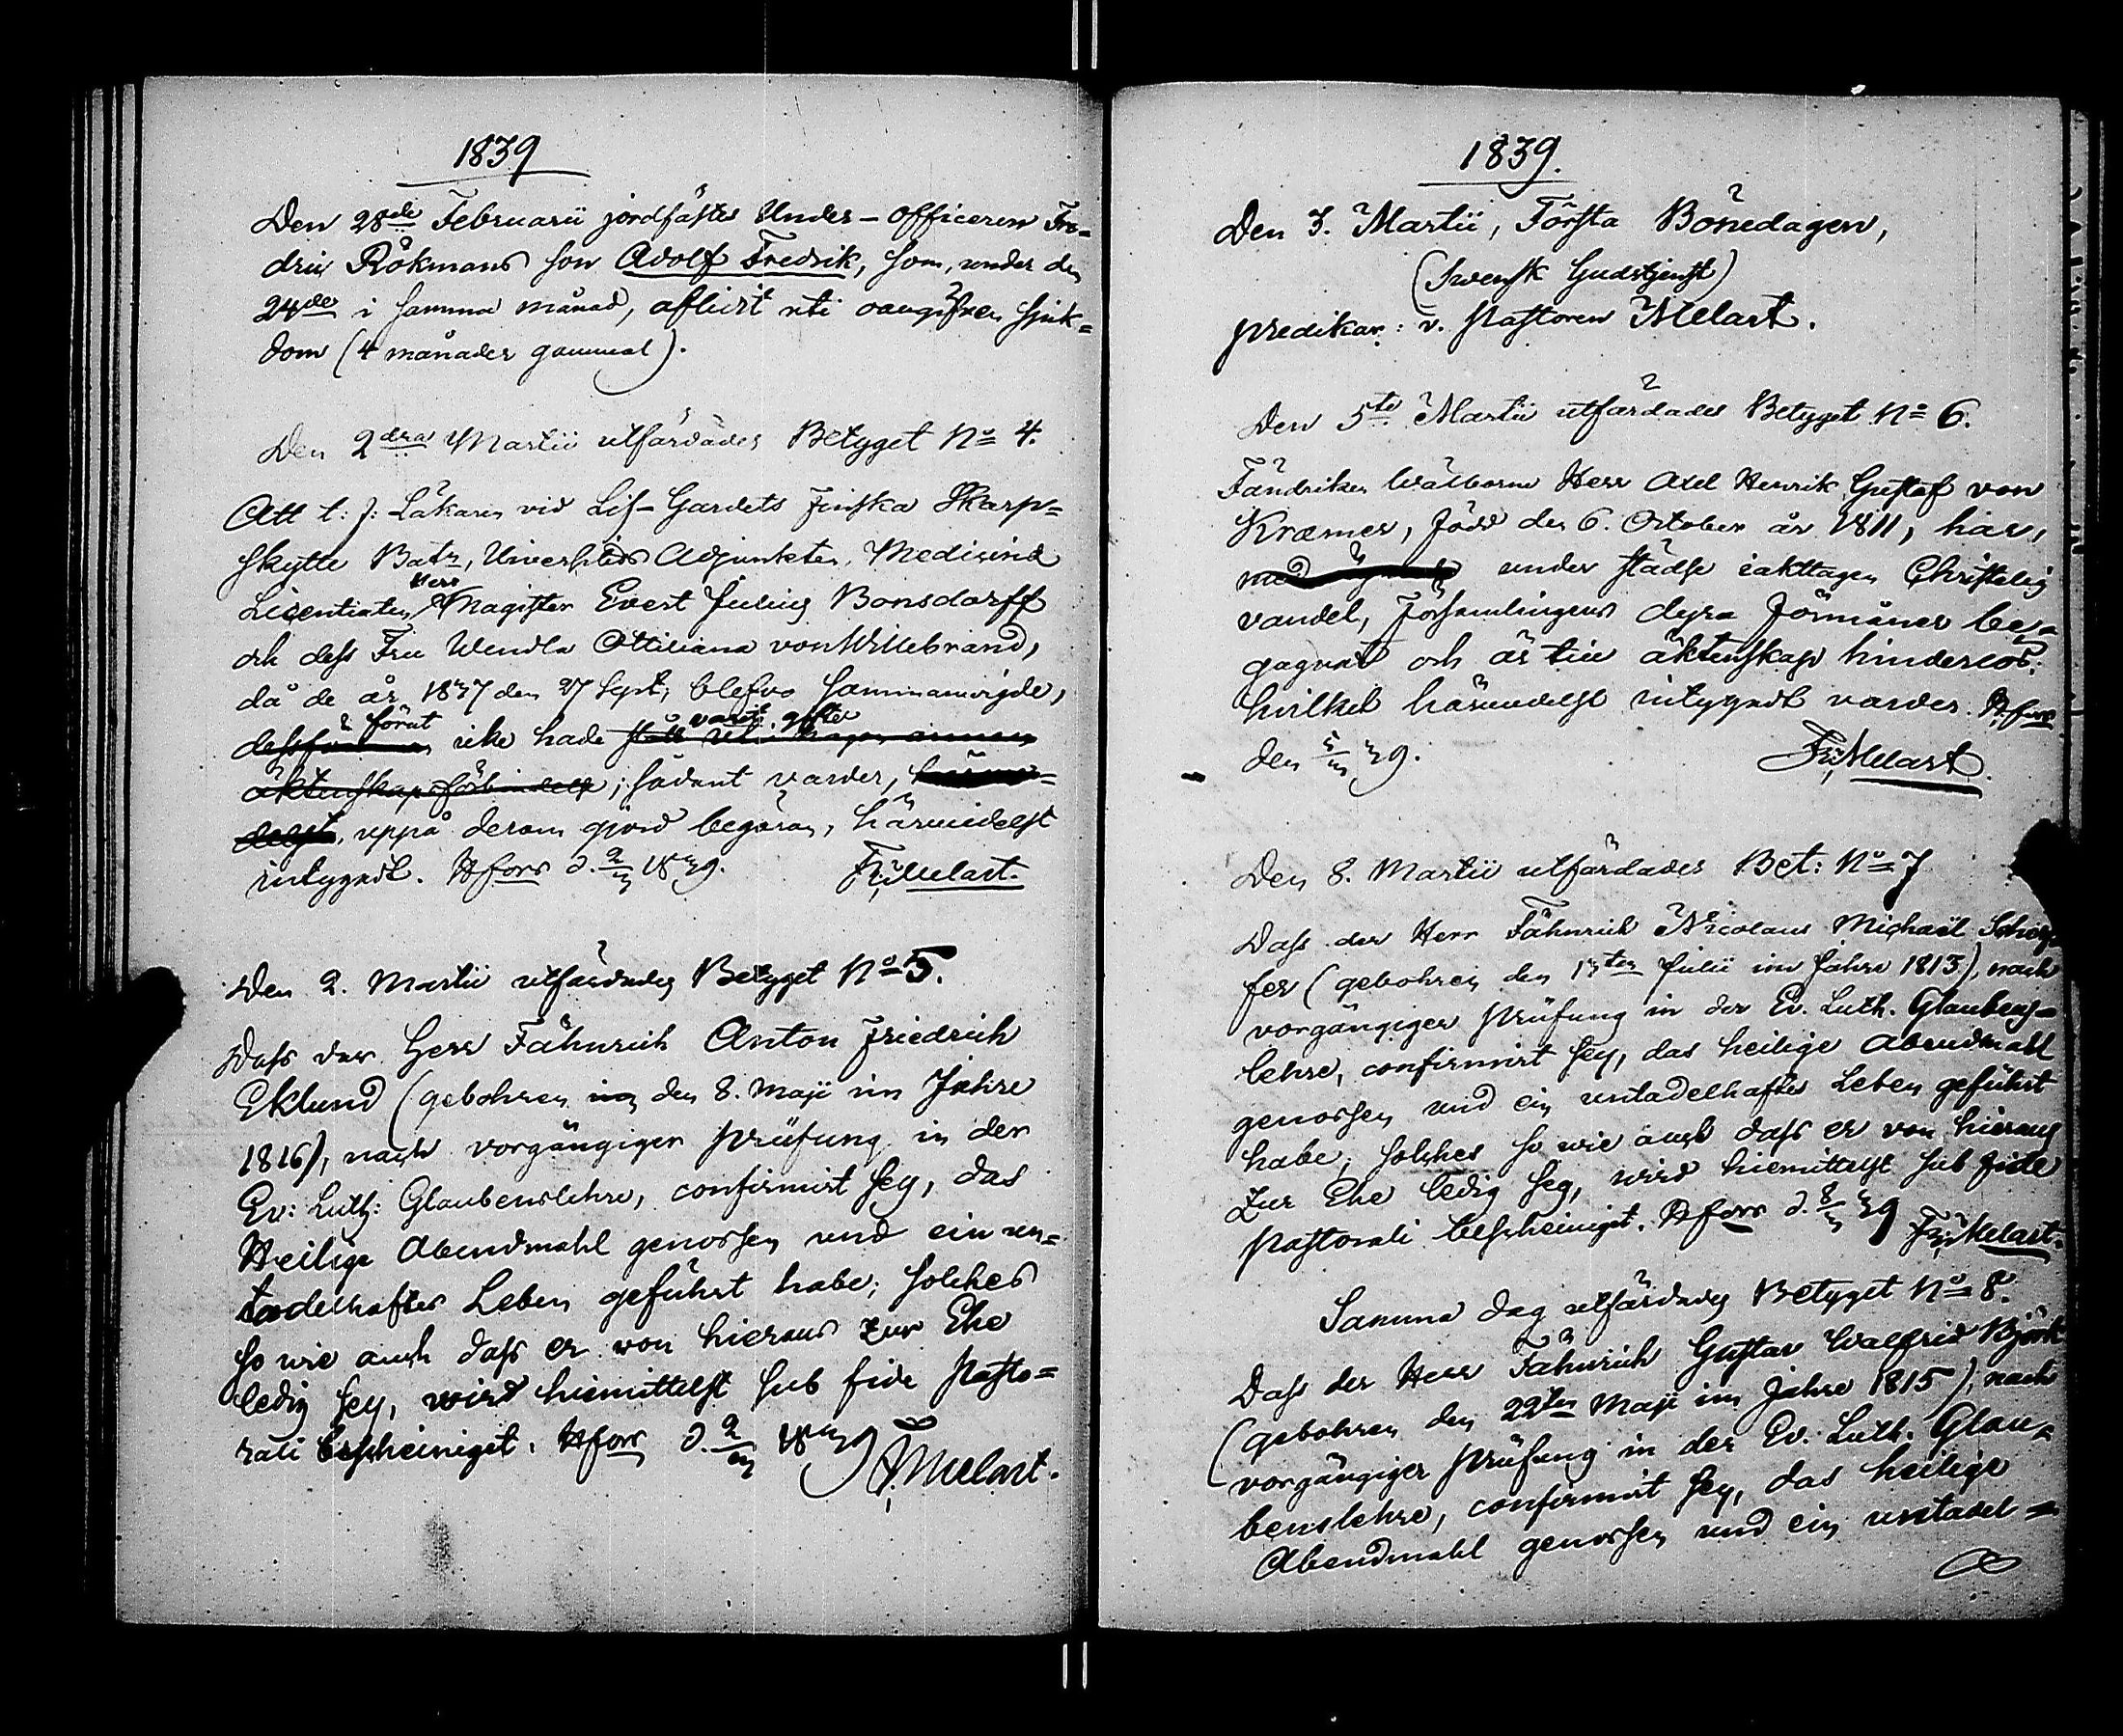 1839
Den 28de Februarii jordfästes Under-officeren Fre=
dric Rökmans son Adolf Fredrik, som, under den
24de i samma månad, aflidit uti oangifven sjuk=
dom (4 månader gammal).
Den 2dra Martii utfärdades Betyget No 4.
Att t: f: Läkaren vid Lif-Gardets Finska Skarp=
skytte Batn, Universitets Adjunkten, Medicinæ
Licentiaten, Herr Magister Evert Julius Bonsdorff
och dess Fru Wendla Ottiliana von Willebrand,
då de år 1837 den 27 Sept, blefvo sammanvigde,
dessförinnan förut icke hade stått uti någon annan varit gifte
äktenskapsförbindelse; sådant varder, härme=
delst, uppå derom gjord begäran, härmedelst
intygadt. Hfors d. 2/III 1839. Fr: Melart.
Den 2. Martii utfärdades Betyget No 5.
Dass der Herr Fähnrich Anton Friedrich
Eklund (gebohren im den 8. Maji im Jahre
1816), nach vorgängiger Prüfung in der
Ev: Luth: Glaubenslehre, confirmirt sey, das
Heilige Abendmahl genossen und ein un=
tadelhaftes Leben geführt habe; solches
so wie auch dass er von hieraus zur Ehe
ledig sey, wird hiemittelst sub fide Pasto=
rali bescheiniget. Hfors d. 2/III 1839
Fr: Melart.
1839.
Den 3. Martii, Första Bönedagen,
(Swensk Gudstjenst)
predikar: v. Pastoren Melart.
Den 5te Martii utfärdades Betyget No 6.
Fändriken Wälborne Herr Axel Henrik Gustaf von
Kræmer, född den 6. October år 1811, har,
med under städse iakttagen Christelig
vandel, Församlingens dyra förmåner be=
gagnat och är till äktenskap hinderlös:
hvilket härmedelst intygadt varder. Hfors
den 5/III 39. Fr: Melart.
Den 8. Martii utfärdades Bet: No 7
Dass der Herr Fähnrich Nicolaus Michaël
fer (gebohren den 13ten Julii im Jahre 1813), nach
vorgängiger Prüfung in der Ev. Luth. Glaubens-
lehre, confirmirt sey, das heilige Abendmahl
genossen und ein untadelhaftes Leben geführt
habe; solches so wie auch dass er von hieraus
zur Ehe ledig sey, wird hiemittelst sub fide
Pastorali bescheiniget. Hfors d. 8/III 39 Fr: Melart.
Samma dag utfärdades Betyget No 8.
Dass der Herr Fähnrich Gustav Walfrid Björk
(gebohren den 22ten Maji im Jahre 1815), nach
vorgängiger Prüfung in der Ev. Luth. Glau=
benslehre, confirmirt sey, das heilige
Abendmahl genossen und ein untadel=